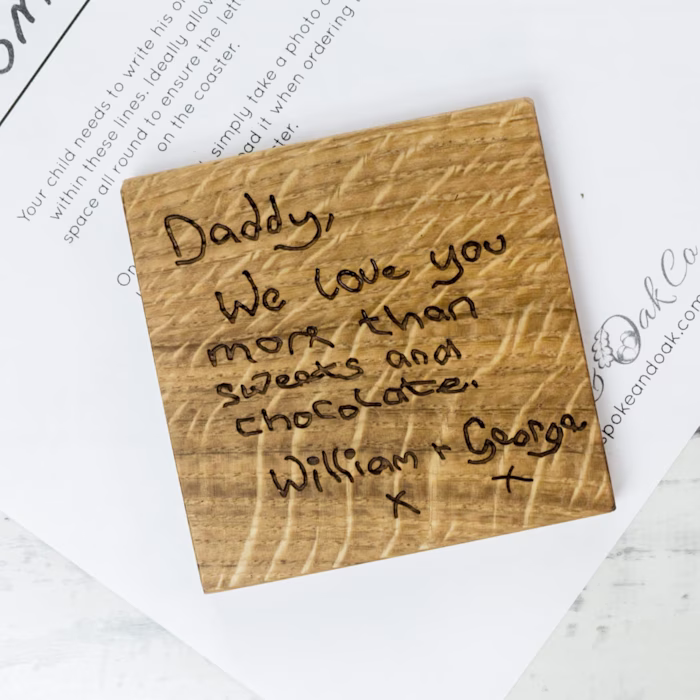 Your child needs to write his o
within these lines. Ideally allow
space all round to ensure the lett
on the coaster.
simply take a photo
ad it when ordering
ter.
Daddy,
We love you
more than
sweets and
chocolate.
William + George
x x
Oak Co
pokeandoak.com